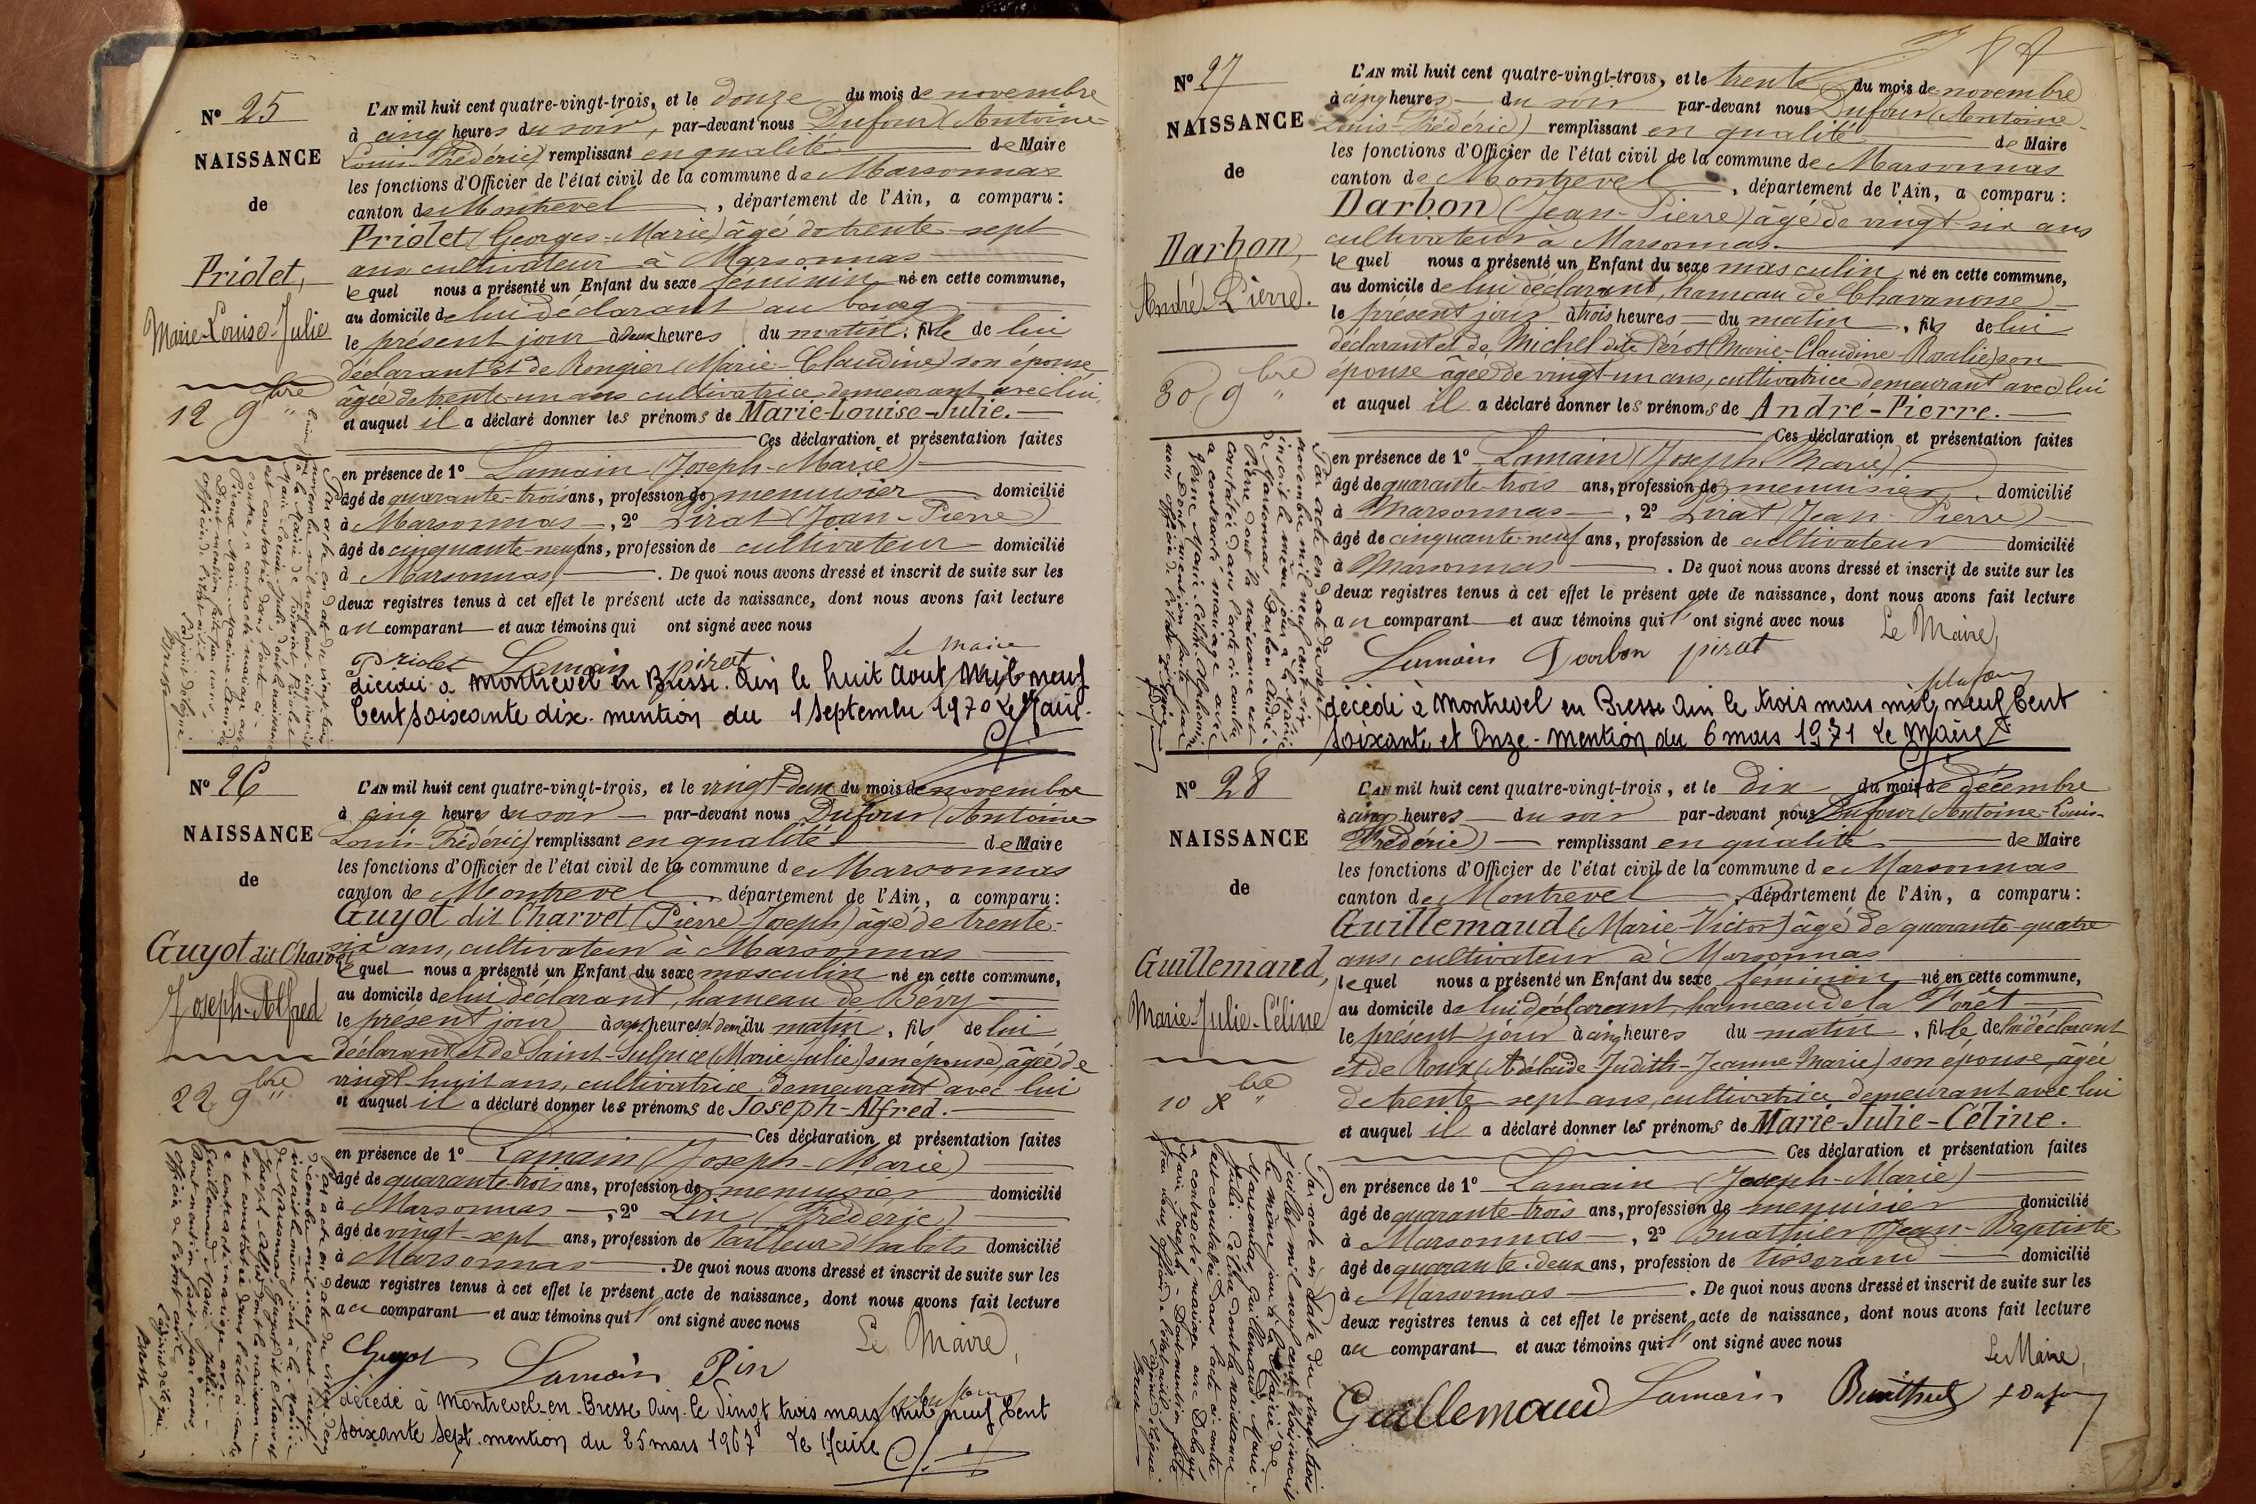 N° 25
NAISSANCE
de
Priolet,
Marie-Louise-Julie
12 9bre
L'AN mil huit cent quatre-vingt-trois, et le douze du mois de novembre
à cinq heures du soir, par-devant nous Dufour (Antoine-
Louis-Frédéric) remplissant en qualité de Maire
les fonctions d'Officier de l'état civil de la commune de Marsonnas
canton de Montrevel, département de l'Ain, a comparu :
Priolet (Georges-Marie) âgé de trente-sept
ans cultivateur à Marsonnas
lequel nous a présenté un Enfant du sexe féminin né en cette commune,
au domicile de lui déclarant au bourg
le présent jour à deux heures du matin, fille de lui
déclarant et de Rongier (Marie-Claudine) son épouse
âgée de trente-un ans cultivatrice demeurant avec lui
et auquel il a déclaré donner les prénoms de Marie-Louise-Julie.
Ces déclaration et présentation faites
en présence de 1° Lamain (Joseph-Marie)
âgé de quarante-trois ans, profession de menuisier domicilié
à Marsonnas, 2° Pirat (Jean-Pierre)
âgé de cinquante-neuf ans, profession de cultivateur domicilié
à Marsonnas. De quoi nous avons dressé et inscrit de suite sur les
deux registres tenus à cet effet le présent acte de naissance, dont nous avons fait lecture
au comparant et aux témoins qui ont signé avec nous
Le Maire
Priolet Lamain pirat
décédée à Montrevel en Bresse. Ain le huit Aout Mil neuf
Cent soixante dix. mention du 1 Septembre 1970 Le Maire.
Par acte en date du vingt-trois
novembre mil neuf cent-cinq inscrit
à la Mairie de Priolet
Marie-Louise-Julie dont la naissance
est constatée dans l'acte ci-
contre, a contracté mariage avec
Dont mention faite par nous,
officier de l'état civil
N° 26
NAISSANCE
de
Guyot dit Charvet
Joseph-Alfred
22 9bre
L'AN mil huit cent quatre-vingt-trois, et le vingt-deux du mois de novembre
à cinq heures du soir par-devant nous Dufour (Antoine
Louis-Frédéric) remplissant en qualité de Maire
les fonctions d'Officier de l'état civil de la commune de Marsonnas
canton de Montrevel département de l'Ain, a comparu :
Guyot dit Charvet (Pierre Joseph) âgé de trente-
six ans, cultivateur à Marsonnas
lequel nous a présenté un Enfant du sexe masculin né en cette commune,
au domicile de lui déclarant, hameau de Bévy
le présent jour à onze heures et demi du matin, fils de lui
déclarant et de Saint-Sulpice (Marie-Julie) son épouse, âgée de
vingt-huit ans, cultivatrice demeurant avec lui
et auquel il a déclaré donner les prénoms de Joseph-Alfred.
Ces déclaration et présentation faites
en présence de 1° Lamain (Joseph-Marie)
âgé de quarante-trois ans, profession de menuisier domicilié
à Marsonnas, 2° (Frédéric)
âgé de vingt-sept ans, profession de tailleur d'habits domicilié
à Marsonnas. De quoi nous avons dressé et inscrit de suite sur les
deux registres tenus à cet effet le présent acte de naissance, dont nous avons fait lecture
au comparant et aux témoins qui ont signé avec nous
Le Maire,
Guyot Lamain Pin
décédé à Montrevel-en-Bresse Ain le Vingt trois mars Mil neuf Cent
Soixante Sept. mention du 25 mars 1967 Le Maire
Par acte en date du vingt-deux
décembre mil neuf cent neuf
inscrit le même jour à la Mairie
de Marsonnas, Guyot dit Charvet
Joseph-Alfred dont la naissance
est constatée dans l'acte ci-contre
a contracté mariage avec
Guillemaud Marie Julie
Dont mention faite par nous,
officier de l'état civil
N° 27
NAISSANCE
de
Darbon,
André-Pierre.
30 9bre
L'AN mil huit cent quatre-vingt-trois, et le trente du mois de novembre
à cinq heures du soir par-devant nous Dufour (Antoine-
Louis-Frédéric) remplissant en qualité de Maire
les fonctions d'Officier de l'état civil de la commune de Marsonnas
canton de Montrevel, département de l'Ain, a comparu :
Darbon (Jean-Pierre) âgé de vingt-six ans
cultivateur à Marsonnas.
lequel nous a présenté un Enfant du sexe masculin, né en cette commune,
au domicile de lui déclarant, hameau de Chavanosse
le présent jour à trois heures du matin, fils de lui
déclarant et de Michel dite Pérot (Marie-Claudine-Rosalie) son
épouse âgée de vingt-un ans, cultivatrice demeurant avec lui
et auquel il a déclaré donner les prénoms de André-Pierre.
Ces déclaration et présentation faites
en présence de 1° Lamain (Joseph Marie)
âgé de quarante-trois ans, profession de menuisier, domicilié
à Marsonnas, 2° Pirat (Jean-Pierre)
âgé de cinquante-neuf ans, profession de cultivateur domicilié
à Marsonnas. De quoi nous avons dressé et inscrit de suite sur les
deux registres tenus à cet effet le présent acte de naissance, dont nous avons fait lecture
au comparant et aux témoins qui ont signé avec nous
Le Maire,
Lamain Darbon pirat
décédé à Montrevel en Bresse Ain le trois mars mil neuf Cent
soixante et Onze. mention du 6 mars 1971 Le Maire
Par acte en date du sept
novembre mil neuf cent six
inscrit le même jour à la Mairie
de Marsonnas Darbon André-
Pierre dont la naissance est
constatée dans l'acte ci-contre
a contracté mariage avec
Dont mention faite par
nous, officier de l'état civil
N° 28
NAISSANCE
de
Guillemaud,
Marie-Julie-Céline
10 Xbre
L'AN mil huit cent quatre-vingt-trois, et le dix du mois de décembre
à cinq heures du soir par-devant nous Dufour (Antoine-Louis-
Frédéric) remplissant en qualité de Maire
les fonctions d'Officier de l'état civil de la commune de Marsonnas
canton de Montrevel, département de l'Ain, a comparu :
Guillemaud (Marie-Victor) âgé de quarante-quatre
ans, cultivateur à Marsonnas
lequel nous a présenté un Enfant du sexe féminin né en cette commune,
au domicile de lui déclarant, hameau de la Forêt
le présent jour à cinq heures du matin, fille de lui déclarant
et de Roux (Adélaïde-Judith-Jeanne Marie) son épouse, âgée
de trente-sept ans, cultivatrice demeurant avec lui
et auquel il a déclaré donner les prénoms de Marie-Julie-Céline.
Ces déclaration et présentation faites
en présence de 1° Lamain (Joseph-Marie)
âgé de quarante-trois ans, profession de menuisier domicilié
à Marsonnas, 2° Buathier (Jean-Baptiste
âgé de quarante-deux ans, profession de tisserand domicilié
à Marsonnas. De quoi nous avons dressé et inscrit de suite sur les
deux registres tenus à cet effet le présent acte de naissance, dont nous avons fait lecture
au comparant et aux témoins qui ont signé avec nous
Le Maire,
Guillemaud Lamain Buathier Dufour
Par acte en date du vingt-trois
juillet mil neuf cent trois inscrit
le même jour à la Mairie de
Marsonnas, Guillemaud Marie
Julie-Céline dont la naissance
est constatée dans l'acte ci-contre
a contracté mariage avec
Marie Joseph - Dont mention faite
par nous, officier de l'état civil